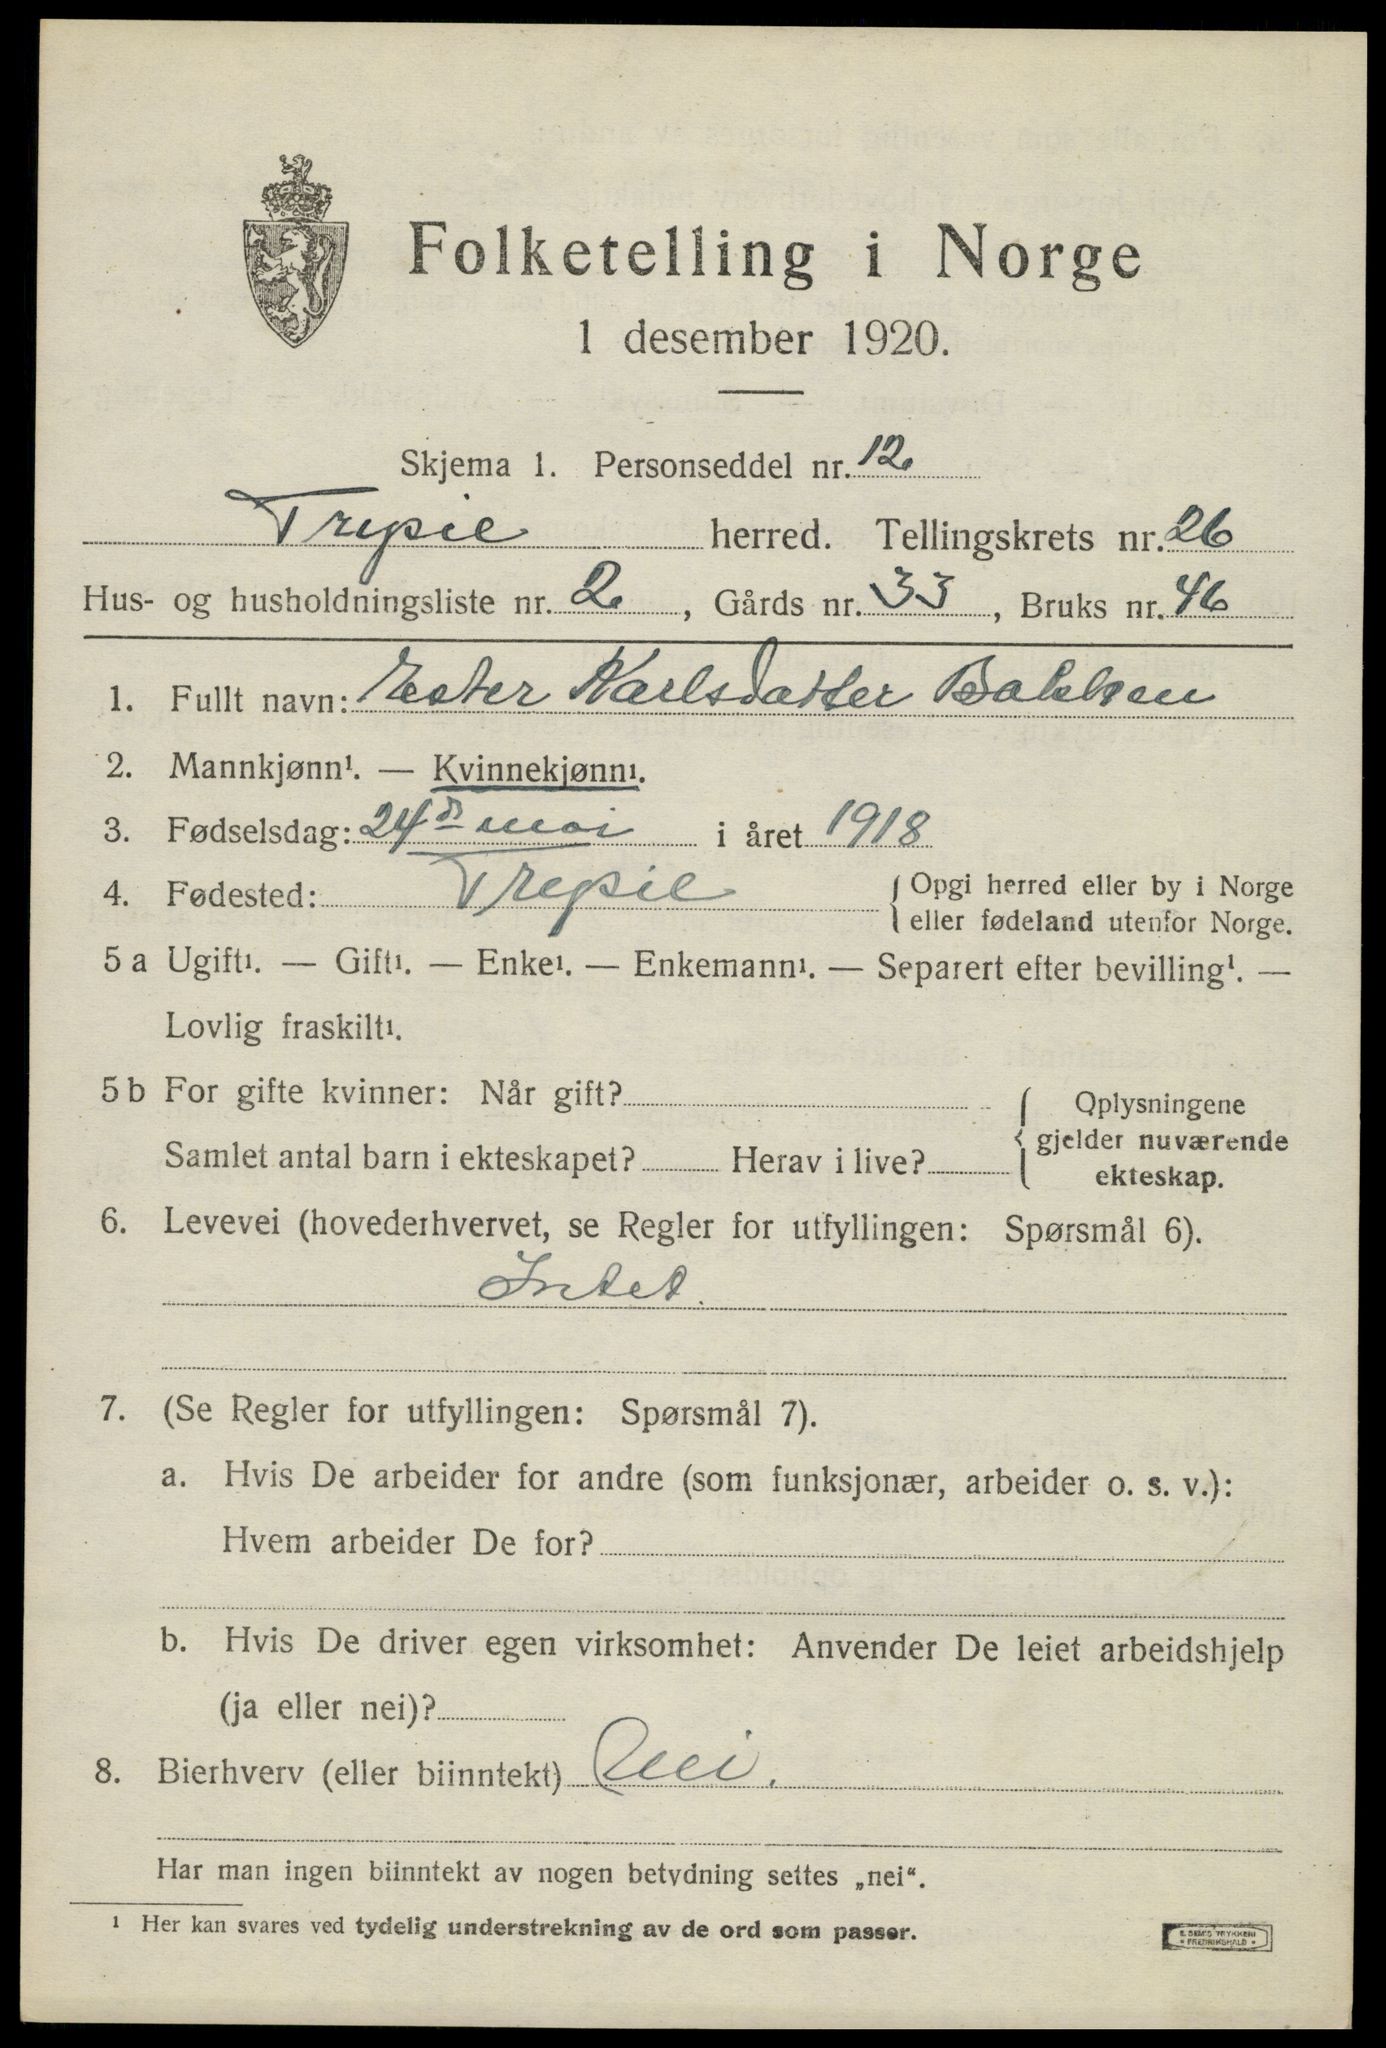 Folketelling i Norge
1 desember 1920.
Skjema 1. Personseddel nr. 12.
Trysil herred. Tellingskrets nr. 26
Hus- og husholdningsliste nr. 2. , Gårds nr. 33 , Bruks nr. 46
1. Fullt navn: Ester Karlsdatter Bakken
2. Mannkjønn¹. — Kvinnekjønn¹.
3. Fødselsdag: 24d mai i året 1918
4. Fødested: Trysil { Opgi herred eller by i Norge
eller fødeland utenfor Norge.
5 a Ugift¹. — Gift¹. — Enke¹. — Enkemann¹. — Separert efter bevilling¹. —
Lovlig fraskilt¹.
5 b For gifte kvinner: Når gift? { Oplysningene
gjelder nuværende
Samlet antal barn i ekteskapet? Herav i live?
ekteskap.
6. Levevei (hovederhvervet, se Regler for utfyllingen: Spørsmål 6).
Intet.
7. (Se Regler for utfyllingen: Spørsmål 7).
a. Hvis De arbeider for andre (som funksjonær, arbeider o. s. v.):
Hvem arbeider De for?
b. Hvis De driver egen virksomhet: Anvender De leiet arbeidshjelp
(ja eller nei)?
8. Bierhverv (eller biinntekt) Nei.
Har man ingen biinntekt av nogen betydning settes „nei“.
¹ Her kan svares ved tydelig understrekning av de ord som passer.
E. SEM'S TRYKKERI
• FREDRIKSHALD •